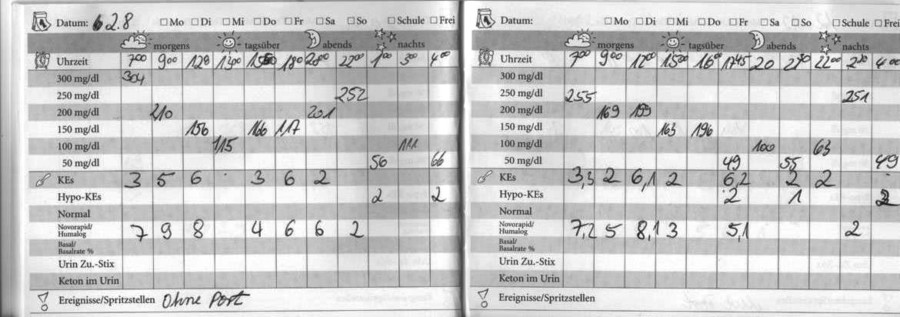 Datum: 6 2.8 Mo Di Mi Do Fr Sa So Schule Frei
morgens tagsüber abends nachts
Uhrzeit 7⁰⁰ 9⁰⁰ 13⁰⁰ 22⁰⁰ 1⁰⁰ 3⁰⁰ 4⁰⁰
300 mg/dl 304
250 mg/dl 252
200 mg/dl 210 201
150 mg/dl 156 166 117
100 mg/dl 115 111
50 mg/dl 56 66
KEs 3 5 6 3 6 2
Hypo-KEs 2 2
Normal
Novorapid/
Humalog 7 9 8 4 6 6 2
Basal/
Basalrate %
Urin Zu.-Stix
Keton im Urin
Ereignisse/Spritzstellen Ohne Port
Datum: Mo Di Mi Do Fr Sa So Schule Frei
morgens tagsüber abends nachts
Uhrzeit 7⁰⁰ 9⁰⁰ 12⁰⁰ 15⁰⁰ 16⁰⁰ 17⁴⁵ 20 22⁰⁰ 4⁰⁰
300 mg/dl
250 mg/dl 255 251
200 mg/dl 169 159
150 mg/dl 163 196
100 mg/dl 100 63
50 mg/dl 49 55 49
KEs 3,3 2 6,1 2 6,2 2 2
Hypo-KEs 2 1 2
Normal
Novorapid/
Humalog 7,2 5 8,1 3 5,1 2
Basal/
Basalrate %
Urin Zu.-Stix
Keton im Urin
Ereignisse/Spritzstellen